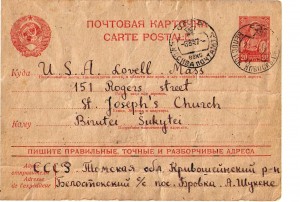 ПОЧТОВАЯ КАРТОЧКА
CARTE POSTALE
Куда U.S.A Lowell Mass
151 Rogers street
St. Joseph's Church
Кому Birutei Sukytei
ПИШИТЕ ПРАВИЛЬНЫЕ, ТОЧНЫЕ И РАЗБОРЧИВЫЕ АДРЕСА
Адрес
СССР Томская обл Кривошеинский р-н
Белостокский с/с пос. Бровка. А. Шукене